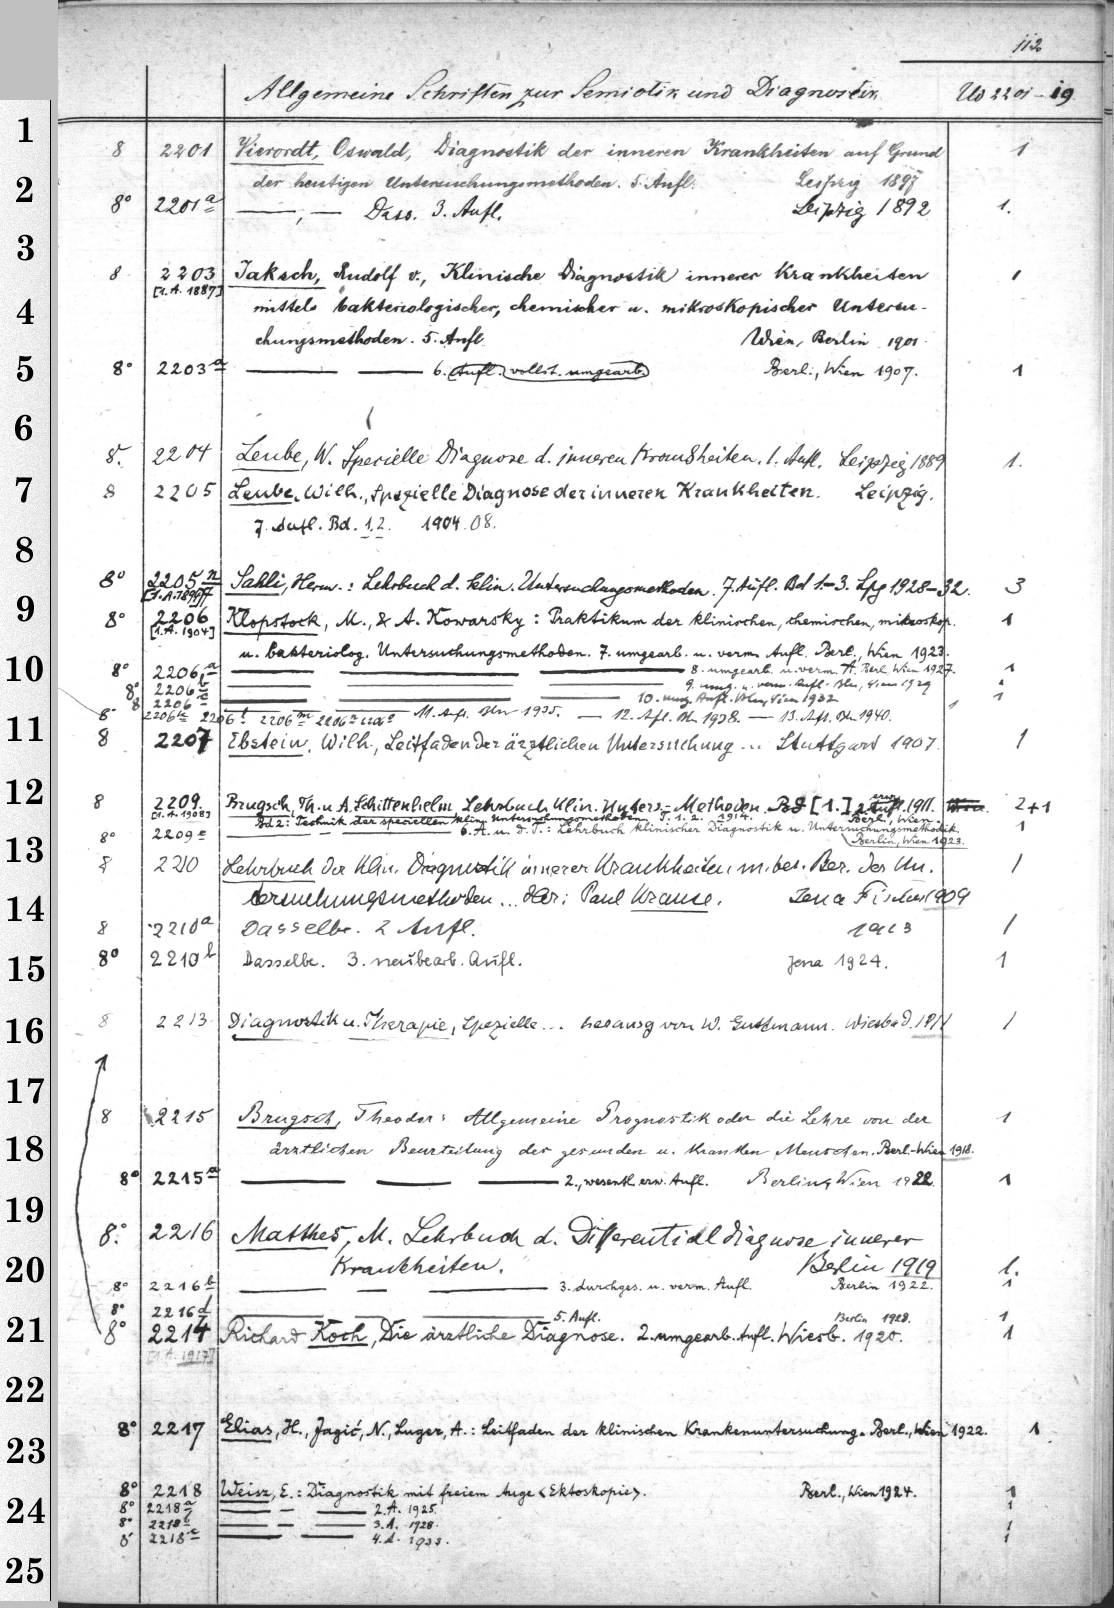 112
Allgemeine Schriften zur Semiotik und Diagnostik Us 2201-19
1
8 2201 Vierordt, Oswald, Diagnostik der inneren Krankheiten auf Grund 1
2
der heutigen Untersuchungsmethoden. 5. Aufl. Leipzig 1897
8° 2201a —, — Dass. 3. Aufl. Leipzig 1892 1.
3
8 2203 Jaksch, Rudolf v., Klinische Diagnostik innerer Krankheiten 1
[1. A. 1887]
4
mittels bakteriologischer, chemischer u. mikroskopischer Untersu-
chungsmethoden. 5. Aufl. Wien, Berlin 1901.
5
8° 2203a — — 6. Aufl. vollst. umgearb. Berl., Wien 1907. 1
6
8. 2204 Leube, W. Specielle Diagnose d. inneren Krankheiten. 1. Aufl. Leipzig 1889 1.
7
8 2205 Leube, Wilh., Spezielle Diagnose der inneren Krankheiten. Leipzig.
7. Aufl. Bd. 1.2. 1904.08.
8
8° 2205n Sahli, Herm.: Lehrbuch d. klin. Untersuchungsmethoden. 7. Aufl. Bd 1-3. Lpg 1928-32. 3
9
8° 2206 Klopstock, M., & A. Kowarsky: Praktikum der klinischen, chemischen, mikroskop. 1
[1. A. 1904]
u. bakteriolog. Untersuchungsmethoden. 7. umgearb. u. verm. Aufl. Berl., Wien 1923.
10
8° 2206a — — — 8. umgearb. u. verm. A. Berl. Wien 1927. 1
8° 2206b — — — 9. umg. u. verm. Aufl. Bln, Wien 1929 1
8 2206c — — — 10. umg. Aufl. Bln, Wien 1932 1
8° 2206l 2206m 2206n 11. Aufl. Bln 1935. — 12. Afl. Bln 1938. — 13. Afl. Bln 1940. 1
11
8 2207 Ebstein, Wilh., Leitfaden der ärztlichen Untersuchung ... Stuttgart 1907. 1
12
8 2209. Brugsch, Th. u. A. Schittenhelm Lehrbuch klin. Unters.-Methoden. Bd [1.] 2. erw. Aufl. 1911. Berl., Wien 2+1
[1. A. 1908] Bd 2: Technik der speciellen klin. Untersuchungsmethoden T. 1. 2. 1914.
8° 2209e — 6. A. u. d. T.: Lehrbuch klinischer Diagnostik u. Untersuchungsmethodik. 1
Berlin, Wien 1923.
13
8 2210 Lehrbuch der klin. Diagnostik innerer Krankheiten m. bes. Ber. der Un. 1
14
tersuchungsmethoden... Paul Krause. Jena Fischer 1909
8 2210a Dasselbe. 2 Aufl. 1913 1
15
8° 2210b Dasselbe. 3. neubearb. Aufl. Jena 1924. 1
16
8 2213 Diagnostik u. Therapie, Spezielle... herausg von W. Guttmann. Wiesbad. 1911 1
17
8 2215 Brugsch, Theodor: Allgemeine Prognostik oder die Lehre von der 1
18
ärztlichen Beurteilung des gesunden u. kranken Menschen. Berl.-Wien 1918.
8° 2215a — — — 2., wesentl. erw. Aufl. Berlin, Wien 1922. 1
19
8° 2216 Matthes, M. Lehrbuch d. Differentialdiagnose innerer
20
Krankheiten. Berlin 1919 1.
8° 2216b — — — 3. durchges. u. verm. Aufl. Berlin 1922. 1
8° 2216d — — 5. Aufl. Berlin 1928. 1
21
8° 2214 Richard Koch, Die ärztliche Diagnose. 2. umgearb. Aufl. Wiesb. 1920. 1
[1. A. 1917]
22
8° 2217 Elias, H., Jagić, N., Luger, A.: Leitfaden der klinischen Krankenuntersuchung. Berl., Wien 1922. 1
23
8° 2218 Weisz, E.: Diagnostik mit freiem Auge <Ektoskopie>. Berl., Wien 1924. 1
24
8° 2218a — — — 2. A. 1925. 1
8° 2218b — — — 3. A. 1928. 1
8° 2218c — — 4. A. 1933. 1
25